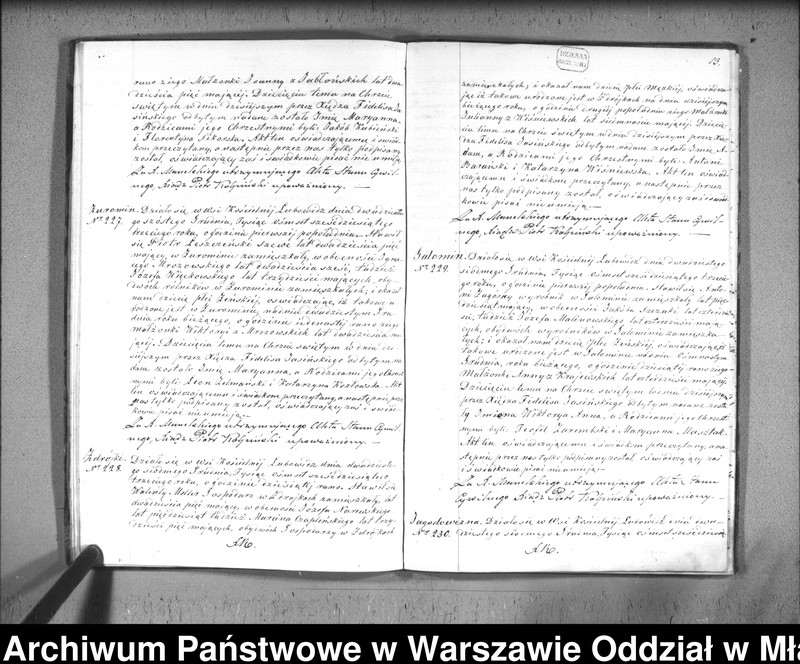 rano z jego Małżonki Joanny z Jabłońskich lat dwa
dzieścia pięć mającej. Dziecięciu temu na Chrzcie
świętym w dniu dzisiejszym przez Księdza Fidelisa Ja
sińskiego odbytym nadane zostało Imie Maryanna,
a Rodzicami jego Chrzestnymi byli: Jakób Kubiński
i Florentyna Sikorska. Akt ten oświadczającemu i świad
kom przeczytany, a następnie przez nas tylko podpisany
został, oświadczający zaś i świadkowie pisać nie umieją.
Za A. Munelskiego utrzymującego Akta Stanu Cywil
nego, Xiądz Piotr upoważniony.
Żuromin. Działo się w wsi Kościelnéj Lubowidz dnia dwudzieste
No 227. go szóstego Grudnia, Tysiąc ośmset sześćdziesiątego
trzeciego roku, o godzinie pierwszéj popołudniu. Stawił
się Piotr Leszczeński szewc lat dwadzieścia pięć
mający, w Żurominie zamieszkały, w obecności Igna
cego Mrozowskiego lat dwadzieścia sześć, tudzież
Józefa Więckowskiego lat trzydzieści mających, oby
dwóch rólników w Żurominie zamieszkałych; i okazał
nam dziecię płci Żeńskiéj, oświadczając, iż takowe u
rodzone jest w Żurominie, na dniu dwudziestym Gru
dnia roku bieżącego, o godzinie rano z jego
małżonki Wiktoryi z Mrozowskich lat dwadzieścia ma
jącéj. Dziecięciu temu na Chrzcie świętym w dniu dzi
siejszym przez Księdza Fidelisa Jasińskiego odbytym na
dane zostało Imie Maryanna, a Rodzicami jego Chrzest
nymi byli: Leon i Katarzyna Kozłowska. Akt
ten oświadczającemu i świadkom przeczytany, a następnie przez
nas tylko podpisany został, oświadczający zaś i świad
kowie pisać nieumieją.
Za A. Munelskiego utrzymującego Akta Stanu Cywil
nego, Xiądz Piotr upoważniony.
Zdrójki. Działo się w wsi Kościelnéj Lubowidz dnia dwudzieste
No 228. go siódmego Grudnia, Tysiąc ośmset sześćdziesiątego
trzeciego roku, o godzinie dziesiątéj rano. Stawił się
Walenty Miller Gospodarz w Zdrojkach zamieszkały, lat
dwadzieścia pięć mający, w obecności Józefa
lat pięćdziesiąt tudzież Marcina Czaplińskiego lat trzy
dzieści pięć mających, obydwóch Gospodarzy w Zdrójkach
13.
zamieszkałych; i okazał nam dziecię płci Męzkiéj, oświadcza
jąc iż takowe urodzone jest w Zdrójkach na dniu
bieżącego roku, o godzinie drugiéj popołudniu z jego Małżonki
Zuzanny z Wiśniewskich lat mającéj. Dziecię
ciu temu na Chrzcie świętym w dniu dzisiejszym przez Xię
dza Fidelisa Jasińskiego odbytym nadane zostało Imie A
dam, a Rodzicami jego Chrzestnymi byli: Antoni
Barański i Katarzyna Wiśniewska. Akt ten oświad
czającemu i świadkom przeczytany, a następnie przez
nas tylko podpisany został, oświadczający zaś i świad
kowie pisać nieumieją.
Za A. Munelskiego utrzymującego Akta Stanu Cywil
nego, Xiądz Piotr upoważniony.
Galomin. Działo się w wsi Kościelnéj Lubowidz dnia dwudziestego
No 229. siódmego Grudnia, Tysiąc ośmset sześćdziesiątego trzecie
go roku, o godzinie pierwszéj popołudniu. Stawił się Anto
ni wyrobnik w Galominie zamieszkały lat
mający, w obecności Jakóba lat
tudzież Józefa Malinowskiego lat mają
cych, obydwóch wyrobników w Galominie zamieszka
łych; i okazał nam dziecię płci Żeńskiéj, oświadczając iż
takowe urodzone jest w Galominie w dniu
Grudnia, roku bieżącego, o godzinie dziesiątéj rano z jego
Małżonki Anny z Krajewskich lat mającéj.
Dziecięciu temu na Chrzcie świętym w dniu dzisiejszym
przez Księdza Fidelisa Jasińskiego odbytym nadane zosta
ły Imiona Wiktorya Anna, a Rodzicami jego Chrzest
nymi byli: Teofil Zarembski i Maryanna
Akt ten oświadczającemu i świadkom przeczytany, a na
stępnie przez nas tylko podpisany został, oświadczający zaś
i świadkowie pisać nieumieją.
Za A. Munelskiego utrzymującego Akta Stanu
Cywilnego Xiądz Piotr upoważniony.
Jagodowizna. Działo się w wsi Kościelnéj Lubowidz dnia dwu
No 230. dziestego siódmego Grudnia, Tysiąc ośmset sześćdziesią
Archiwum Państwowe w Warszawie Oddział w Mła